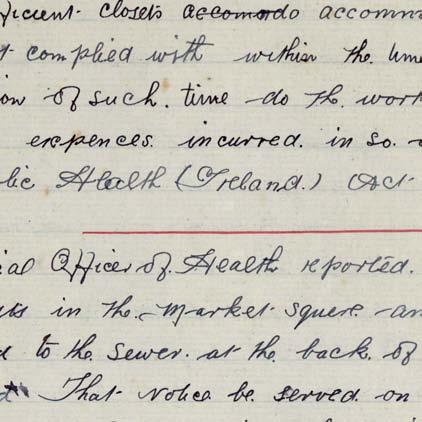 ficient closets accomodo accomm
t complied with within the time
ion of such time do the work
expences incurred in so d
lic Health (Ireland) Act
ial Officer of Health reported.
ts in the Market square an
d to the sewer at the back of
That notice be served on